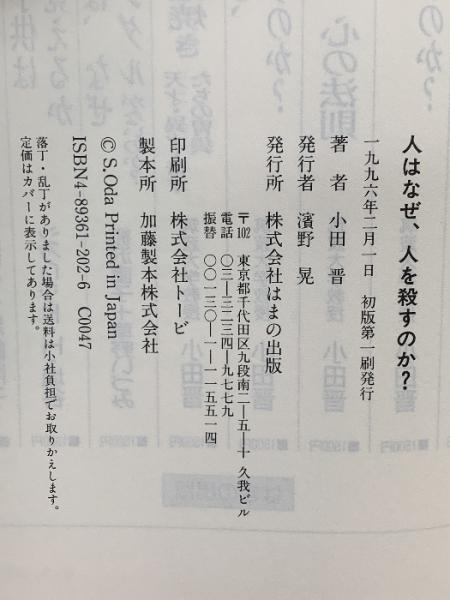 人はなぜ、人を殺すのか?
一九九六年二月一日 初版第一刷発行
著者 小田晋
発行者 濱野晃
発行所 株式会社はまの出版
〒102 東京都千代田区九段南二―五―十 久我ビル
電話 〇三―三二三四―九七七九
振替 〇〇一三〇―一―一一五五一四
印刷所 株式会社トービ
製本所 加藤製本株式会社
© S.Oda Printed in Japan
ISBN4-89361-202-6 C0047
落丁・乱丁がありました場合は送料は小社負担でお取りかえします。
定価はカバーに表示してあります。